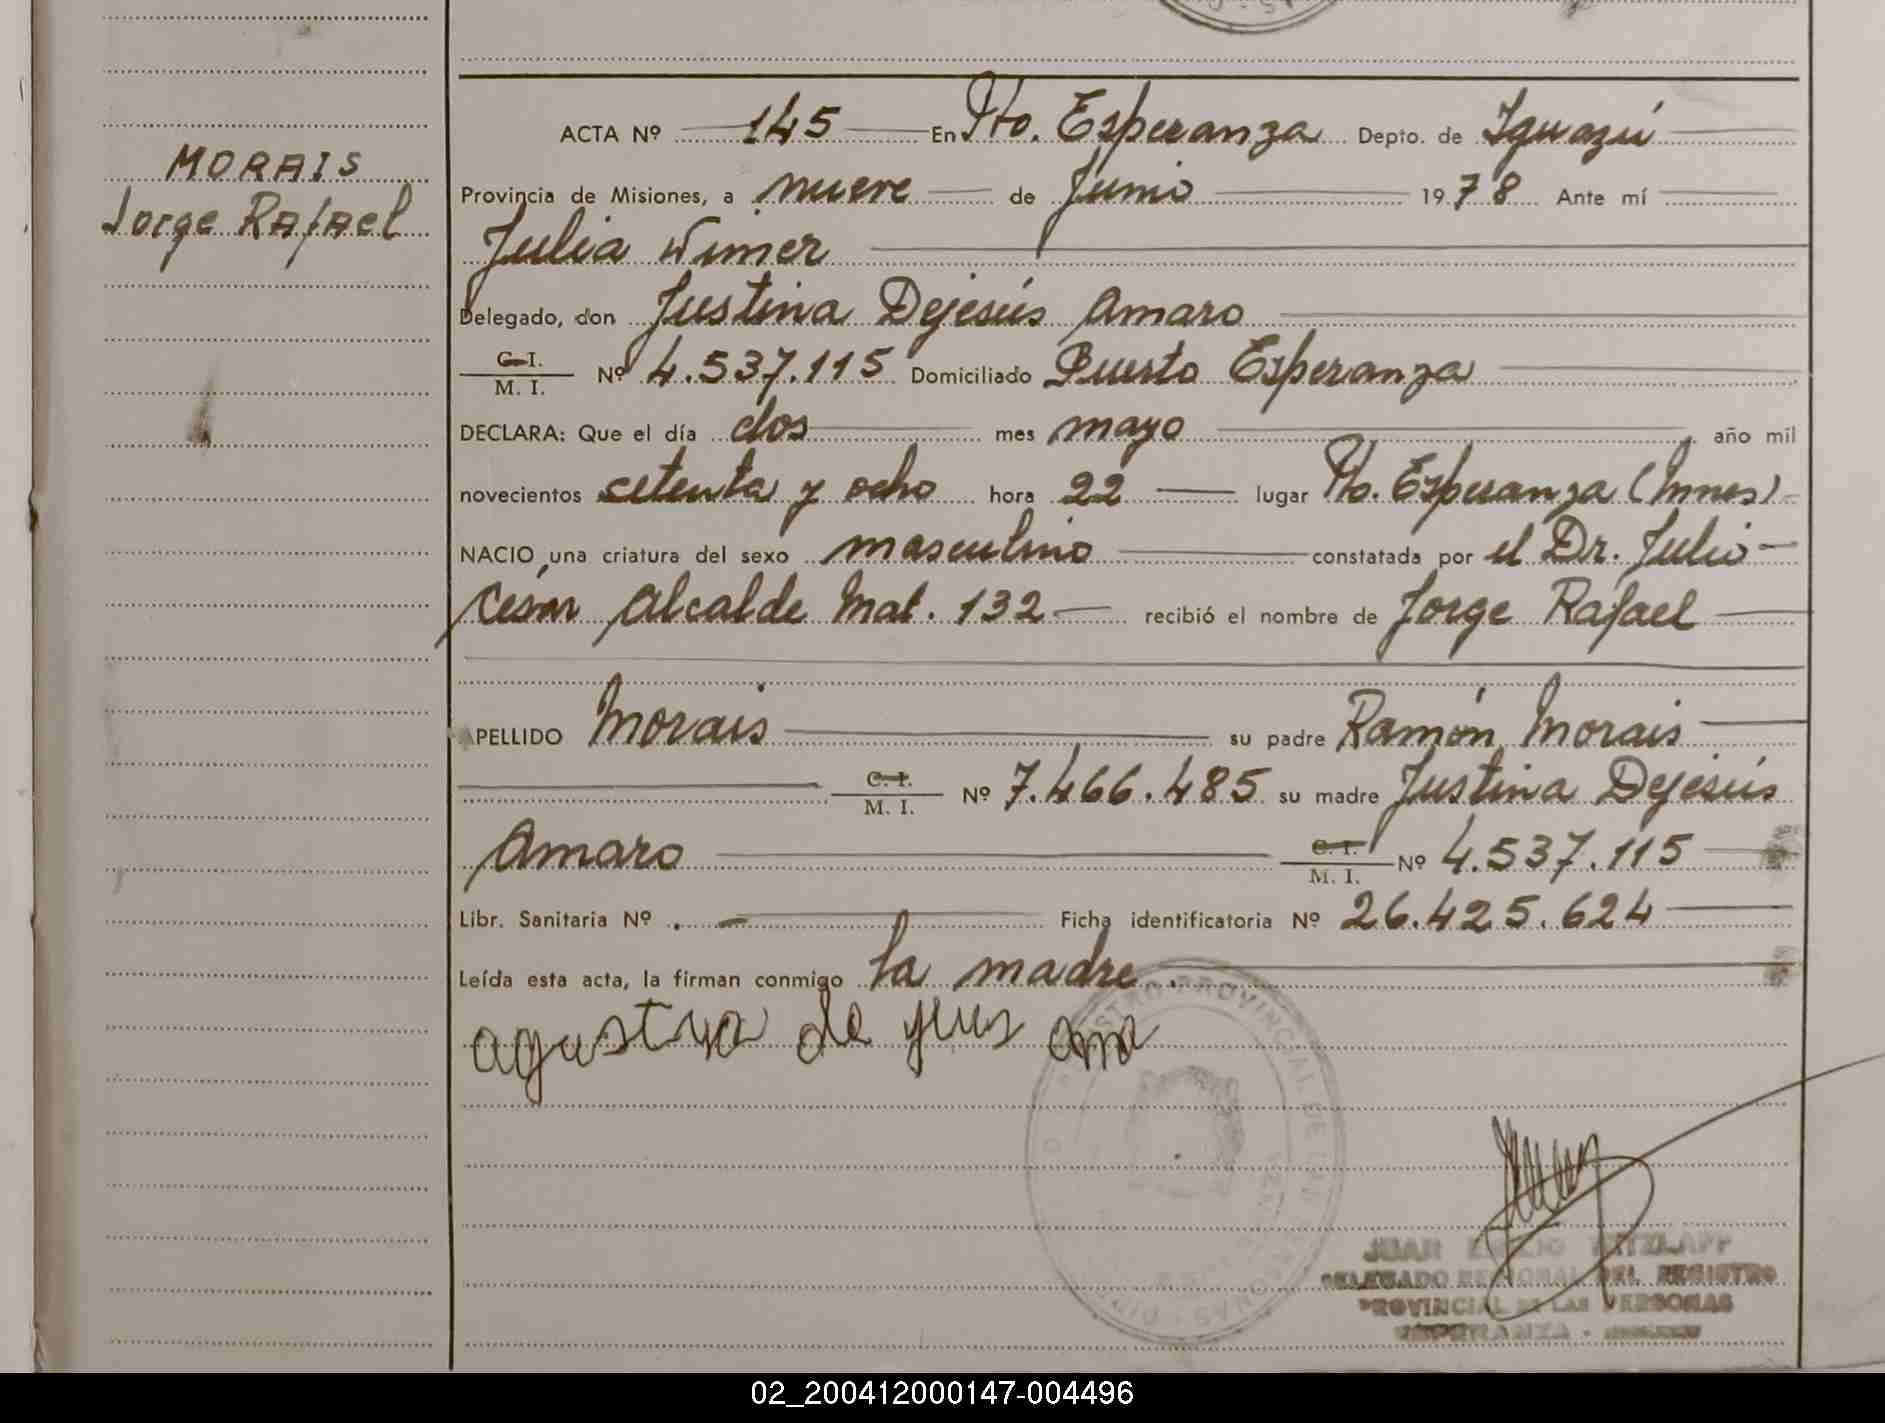 MORAIS
Jorge Rafael
ACTA Nº 145 En Pto. Esperanza Depto. de Iguazú
Provincia de Misiones, a nueve de Junio 1978 Ante mí
Julia Wimer
Delegado, don Justina Dejesús Amaro
C. I. / M. I. Nº 4.537.115 Domiciliado Puerto Esperanza
DECLARA: Que el día dos mes mayo año mil
novecientos setenta y ocho hora 22 lugar Pto. Esperanza (Mnes)
NACIO una criatura del sexo masculino constatada por el Dr. Julio
César Alcalde Mat. 132 recibió el nombre de Jorge Rafael
APELLIDO Morais su padre Ramón Morais
C. I. / M. I. Nº 7.466.485 su madre Justina Dejesús
Amaro C. I. / M. I. Nº 4.537.115
Libr. Sanitaria Nº . — Ficha identificatoria Nº 26.425.624
Leída esta acta, la firman conmigo la madre.
agustina de jesus ama
REGISTRO PROVINCIAL DE LAS PERSONAS
JUAN
DELEGADO REGIONAL DEL REGISTRO
PROVINCIAL DE LAS PERSONAS
ESPERANZA -
02_200412000147-004496